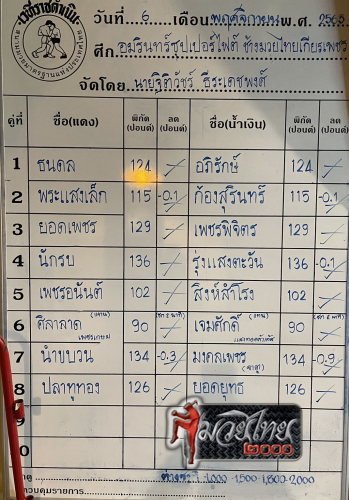 เวทีราชดำเนิน
วันที่ 6 เดือน พฤศจิกายน พ.ศ. 2565
ศึก อมรินทร์ซุปเปอร์ไฟต์ ช้างมวยไทยเกียรติเพชร
จัดโดย นายฐิติวัชร์ ธีระเดชพงศ์
คู่ที่ ชื่อ(แดง) พิกัด (ปอนด์) ลด (ปอนด์) ชื่อ(น้ำเงิน) พิกัด (ปอนด์) ลด (ปอนด์)
1 ธนดล 124 อภิรักษ์ 124
2 พระแสงเล็ก 115 -0.1 ก้องสุรินทร์ 115 -0.1
3 ยอดเพชร 129 เพชรพิจิตร 129
4 นักรบ 136 รุ่งแสงตะวัน 136 -0.1
5 เพชรอนันต์ 102 สิงห์สำโรง 102
6 ศิลาลาด 90 เจมศักดิ์ 90
7 นำขบวน 134 -0.3 มงคลเพชร 134 -0.9
8 ปลาทูทอง 126 ยอดยุทธ 126
9
0
มวยไทย
๒๐๐๐
1,000 -1,500 -1,800 -2,000
ควบคุมรายการ